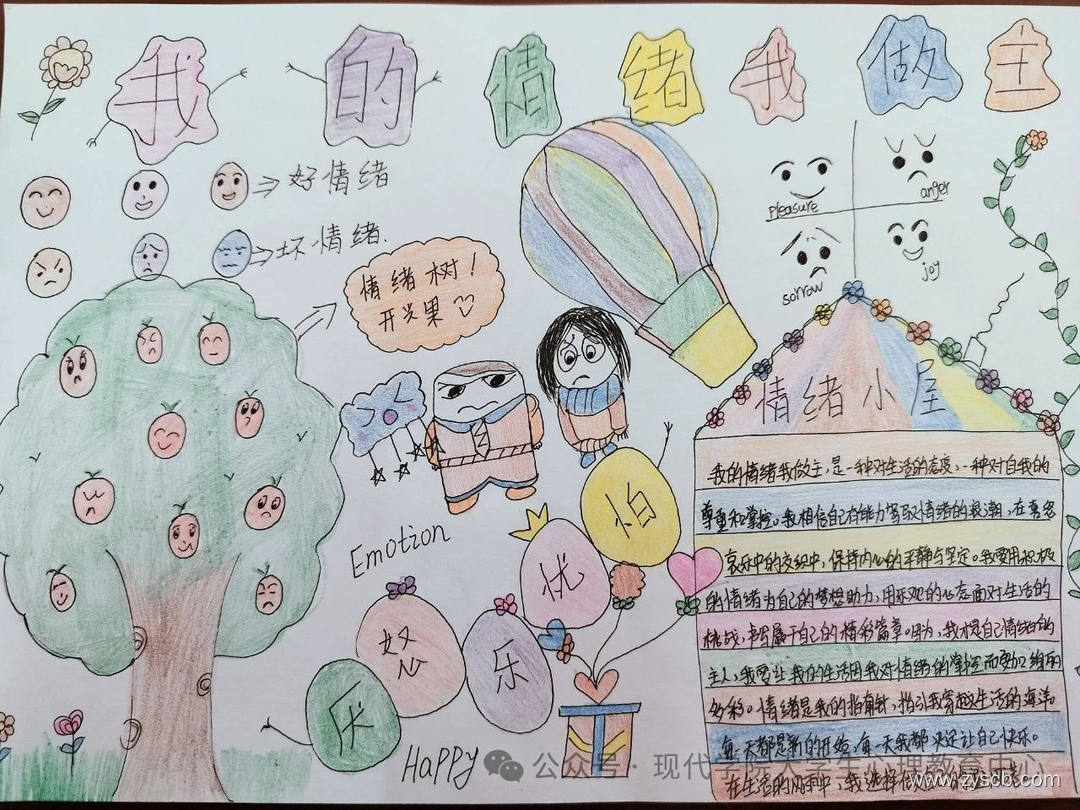 我的情绪我做主
好情绪
坏情绪.
情绪树!
开兴果
pleasure
anger
sorrow
joy
情绪小屋
我的情绪我做主,是一种对生活的态度,一种对自我的
尊重和掌控。我相信自己有能力驾驭情绪的浪潮,在喜怒
哀乐中的交织中,保持内心的平静与坚定。我要用积极
的情绪为自己的梦想助力,用乐观的心态面对生活的
挑战,书写属于自己的精彩篇章。因为,我才是自己情绪的
主人,我要让我的生活因我对情绪的掌控而更加绚丽
多彩。情绪是我的指南针,指引我穿越生活的海洋。
每一天都是新的开始,每一天我都决定让自己快乐。
在生活的风雨中,我选择
Emotion
怕
忧
怒
乐
厌
Happy
公众号·现代学院大学生心理教育中心
www.zyscb.com